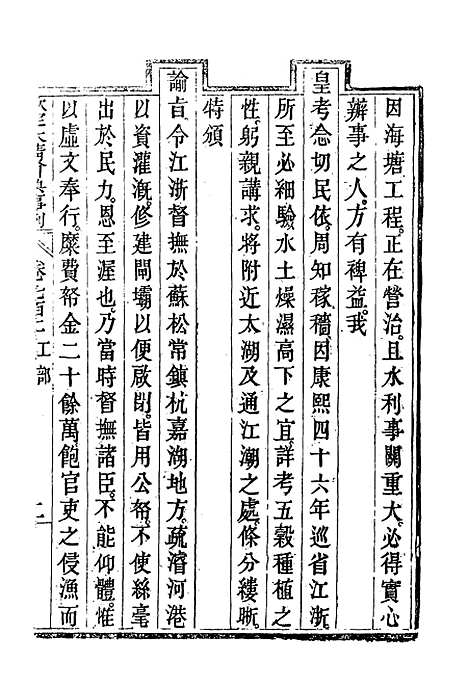 因海塘工程。正在營治。且水利事關重大。必得實心
辦事之人。方有裨益。我
皇考念切民依。周知稼穡。因康熙四十六年巡省江浙。
所至必細驗水土燥濕高下之宜。詳考五穀種植之
性。躬親講求。將附近太湖及通江潮之處。條分縷晰。
特頒
諭旨。令江浙督撫於蘇松常鎮杭嘉湖地方。疏濬河港
以資灌漑。修建閘壩以便啟閉。皆用公帑。不使絲毫
出於民力。恩至渥也。乃當時督撫諸臣。不能仰體。惟
以虛文奉行。糜費帑金二十餘萬。飽官吏之侵漁而
欽定大清會典事例 工部